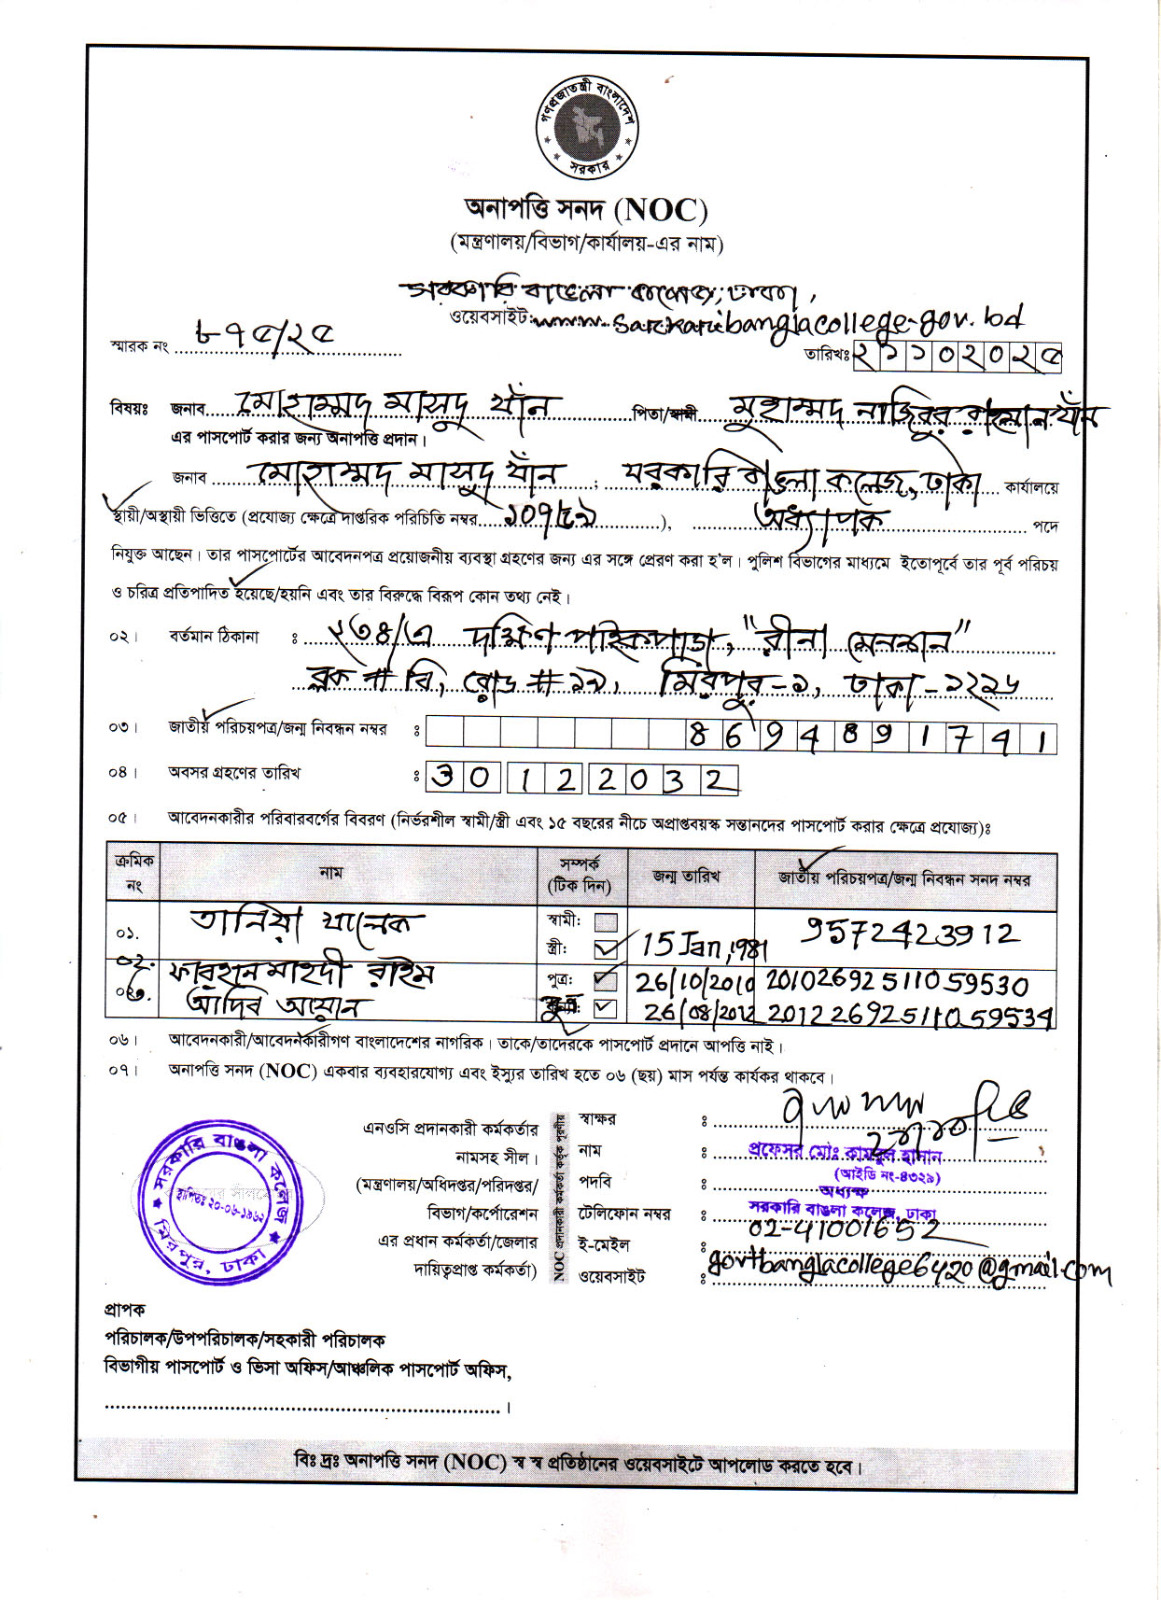 গণপ্রজাতন্ত্রী বাংলাদেশ
সরকার
অনাপত্তি সনদ (NOC)
(মন্ত্রণালয়/বিভাগ/কার্যালয়-এর নাম)
সরকারি বাঙলা কলেজ, ঢাকা,
ওয়েবসাইট: www.sarkaribanglacollege-gov.bd
স্মারক নং ৮৭৫/২৫
তারিখঃ ২১১০২০২৫
বিষয়ঃ জনাব মোহাম্মদ মাসুদ খাঁন পিতা/স্বামী মুহাম্মদ নাজিবুর রহমান খাঁন
এর পাসপোর্ট করার জন্য অনাপত্তি প্রদান।
জনাব মোহাম্মদ মাসুদ খাঁন, সরকারি বাঙলা কলেজ, ঢাকা কার্যালয়ে
স্থায়ী/অস্থায়ী ভিত্তিতে (প্রযোজ্য ক্ষেত্রে দাপ্তরিক পরিচিতি নম্বর ১০৭৫৯), অধ্যাপক পদে
নিযুক্ত আছেন। তার পাসপোর্টের আবেদনপত্র প্রয়োজনীয় ব্যবস্থা গ্রহণের জন্য এর সঙ্গে প্রেরণ করা হ'ল। পুলিশ বিভাগের মাধ্যমে ইতোপূর্বে তার পূর্ব পরিচয়
ও চরিত্র প্রতিপাদিত হয়েছে/হয়নি এবং তার বিরুদ্ধে বিরূপ কোন তথ্য নেই।
০২। বর্তমান ঠিকানা ঃ ২৩৪/এ দক্ষিণ পাইকপাড়া, "রীনা মেনশন"
ব্লক # বি, রোড # ১৯, মিরপুর-১, ঢাকা-১২১৬
০৩। জাতীয় পরিচয়পত্র/জন্ম নিবন্ধন নম্বর ঃ 8694891741
০৪। অবসর গ্রহণের তারিখ ঃ 30122032
০৫। আবেদনকারীর পরিবারবর্গের বিবরণ (নির্ভরশীল স্বামী/স্ত্রী এবং ১৫ বছরের নীচে অপ্রাপ্তবয়স্ক সন্তানদের পাসপোর্ট করার ক্ষেত্রে প্রযোজ্য)ঃ
ক্রমিক নং নাম সম্পর্ক (টিক দিন) জন্ম তারিখ জাতীয় পরিচয়পত্র/জন্ম নিবন্ধন সনদ নম্বর
০১. তানিয়া খালেক স্বামী: স্ত্রী: 15 Jan, 1981 9572423912
০২. ফারহান মাহদী রাইম পুত্র: 26/10/2010 20102692511059530
০৩. আদিব আয়োন পুত্র: 26/08/2012 20122692511059534
০৬। আবেদনকারী/আবেদনকারীগণ বাংলাদেশের নাগরিক। তাকে/তাদেরকে পাসপোর্ট প্রদানে আপত্তি নাই।
০৭। অনাপত্তি সনদ (NOC) একবার ব্যবহারযোগ্য এবং ইস্যুর তারিখ হতে ০৬ (ছয়) মাস পর্যন্ত কার্যকর থাকবে।
সরকারি বাঙলা কলেজ
স্থাপিতঃ ২০-০৬-১৯৬২
মিরপুর, ঢাকা
এনওসি প্রদানকারী কর্মকর্তার
নামসহ সীল।
(মন্ত্রণালয়/অধিদপ্তর/পরিদপ্তর/
বিভাগ/কর্পোরেশন
এর প্রধান কর্মকর্তা/জেলার
দায়িত্বপ্রাপ্ত কর্মকর্তা)
NOC প্রদানকারী কর্মকর্তা কর্তৃক পূরণীয়
স্বাক্ষর ঃ
নাম ঃ প্রফেসর মোঃ কামরুল হাসান
(আইডি নং-৪৩২৯)
পদবি ঃ অধ্যক্ষ
সরকারি বাঙলা কলেজ, ঢাকা
টেলিফোন নম্বর ঃ 02-41001652
ই-মেইল ঃ govtbanglacollege6420@gmail.com
ওয়েবসাইট ঃ
প্রাপক
পরিচালক/উপপরিচালক/সহকারী পরিচালক
বিভাগীয় পাসপোর্ট ও ভিসা অফিস/আঞ্চলিক পাসপোর্ট অফিস,
।
বিঃ দ্রঃ অনাপত্তি সনদ (NOC) স্ব স্ব প্রতিষ্ঠানের ওয়েবসাইটে আপলোড করতে হবে।